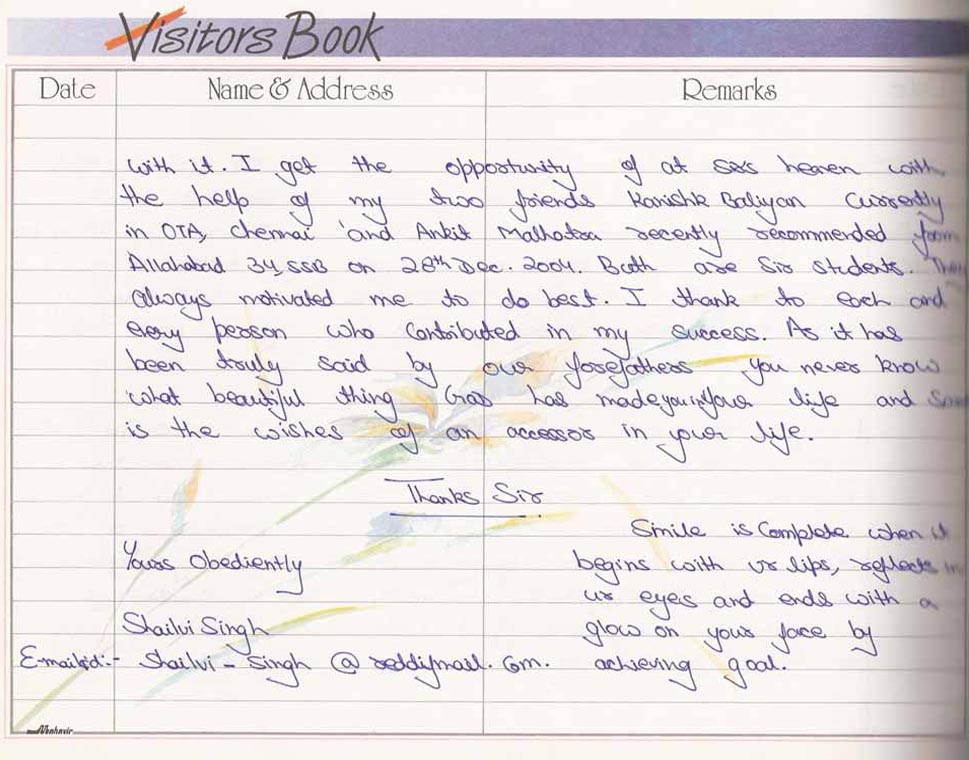 Visitors Book
Date Name & Address Remarks
with it. I get the opportunity of at sirs heaven with
the help of my two friends Kanishk Baliyan Currently
in OTA, chennai and Ankit Malhotra recently recommended from
Allahabad 34, SSB on 28th Dec. 2004. Both are Sir students. They
always motivated me to do best. I thank to each and
every person who Contributed in my success. As it has
been truly said by our forefathers you never know
what beautiful thing God has made you in your life and
is the wishes of an accessor in your life.
Thanks Sir
Smile is Complete when it
begins with ur lips, reflects in
ur eyes and ends with a
glow on your face by
achieving goal.
Yours Obediently
Shailvi Singh
E-mail id:- Shailvi - Singh @ rediffmail. Com.
Mahavir